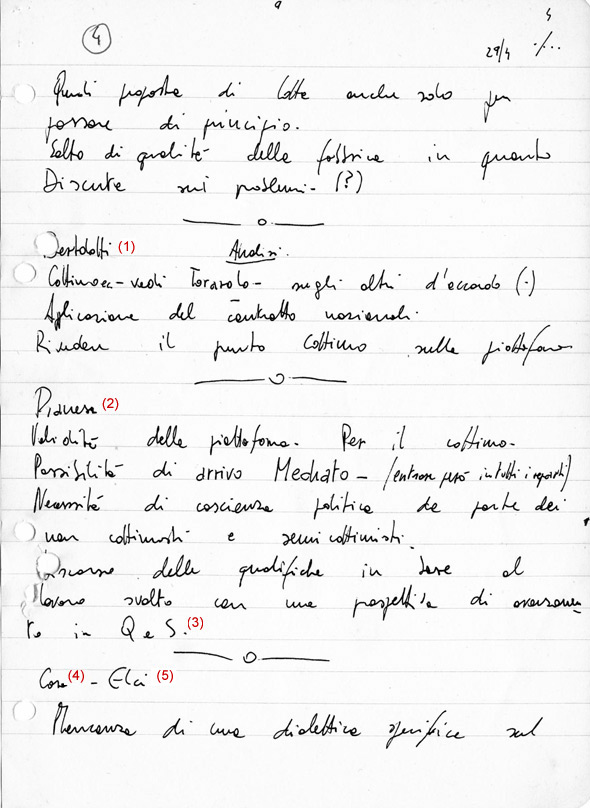 4
4
29/4 ·/...
Quindi proposta di lotte anche solo per
passare di principio.
Salto di qualità della fabbrica in quanto
Discute sui problemi - (?)
Bertolotti (1) Analisi.
Cottimo ecc - vedi Toravolo - sugli altri d'accordo (·)
Aplicazione del contratto nazionali.
Rivedere il punto cottimo sulla piattaforma
Pianesa (2)
Validità della piattaforma. Per il cottimo.
Possibilità di arrivo Mediato - (entrare però in tutti i reparti)
Necessità di coscienza politica da parte dei
non cottimisti e semicottimisti.
Discorso delle qualifiche in base al
lavoro svolto con una prospettiva di avanzamen
to in Q e S. (3)
Cora (4) - Elci (5)
Mancanza di una dialettica specifica sul